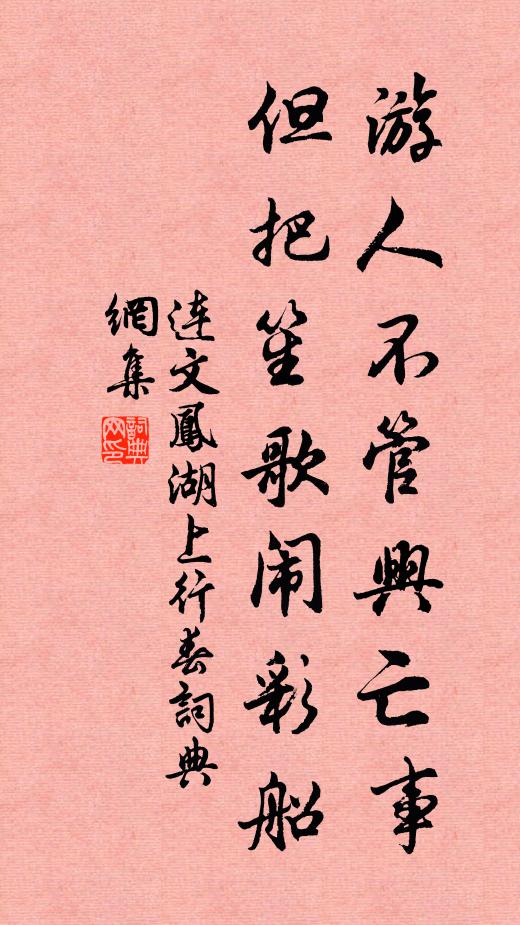 游人不管興亡事
但把笙歌闹彩船
连文鳳湖上行春詞典
網集
詞典
网印